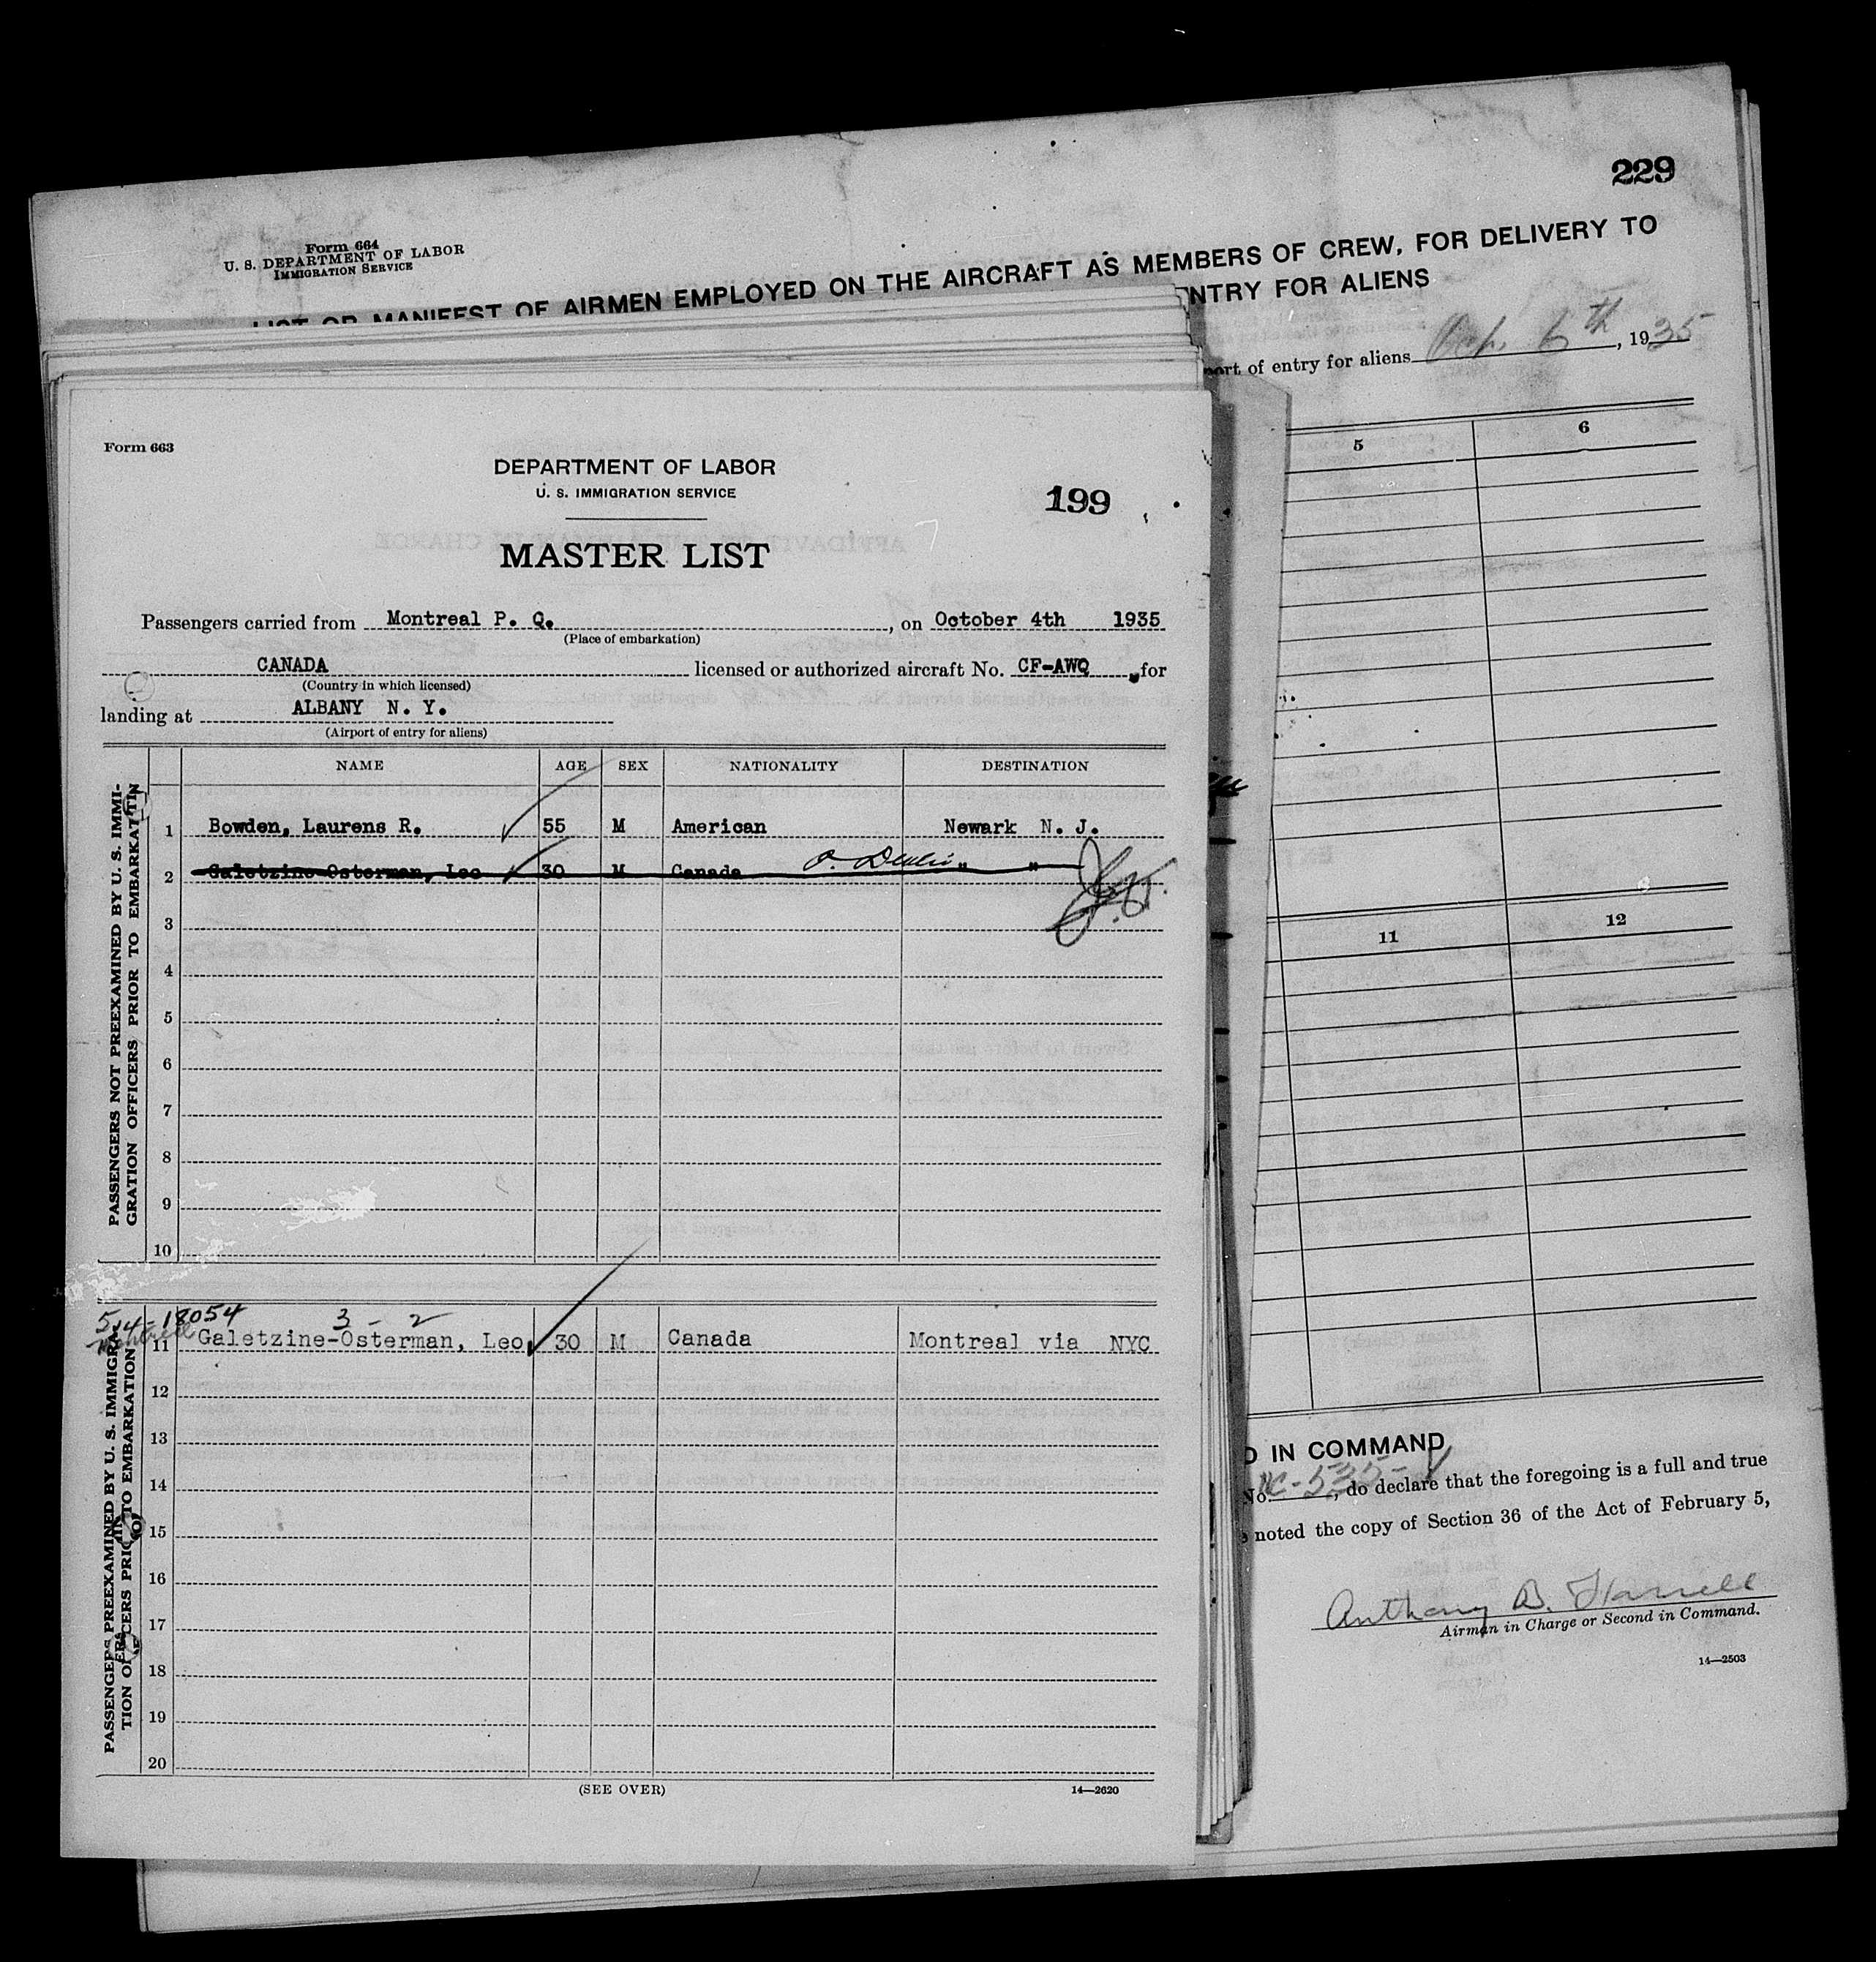 229
Form 664
U. S. DEPARTMENT OF LABOR
IMMIGRATION SERVICE
LIST OR MANIFEST OF AIRMEN EMPLOYED ON THE AIRCRAFT AS MEMBERS OF CREW, FOR DELIVERY TO
ENTRY FOR ALIENS
port of entry for aliens Oct. 6th, 1935
5 6
11 12
D IN COMMAND
No. NC-535-V, do declare that the foregoing is a full and true
noted the copy of Section 36 of the Act of February 5,
Anthony B.
Airman in Charge or Second in Command.
14—2503
Form 663
DEPARTMENT OF LABOR
U. S. IMMIGRATION SERVICE
199
MASTER LIST
Passengers carried from Montreal P. Q., on October 4th 1935
(Place of embarkation)
CANADA licensed or authorized aircraft No. CF-AWQ, for
(Country in which licensed)
landing at ALBANY N. Y.
(Airport of entry for aliens)
NAME AGE SEX NATIONALITY DESTINATION
PASSENGERS NOT PREEXAMINED BY U. S. IMMI-
GRATION OFFICERS PRIOR TO EMBARKATION
1 Bowden, Laurens R. 55 M American Newark N. J.
2 Galetzine-Osterman, Leo 30 M Canada " "
3
4
5
6
7
8
9
10
PASSENGERS PREEXAMINED BY U. S. IMMIGRA-
TION OFFICERS PRIOR TO EMBARKATION
514-18054 3-2
Montreal
11 Galetzine-Osterman, Leo 30 M Canada Montreal via NYC
12
13
14
15
16
17
18
19
20
(SEE OVER)
14—2620